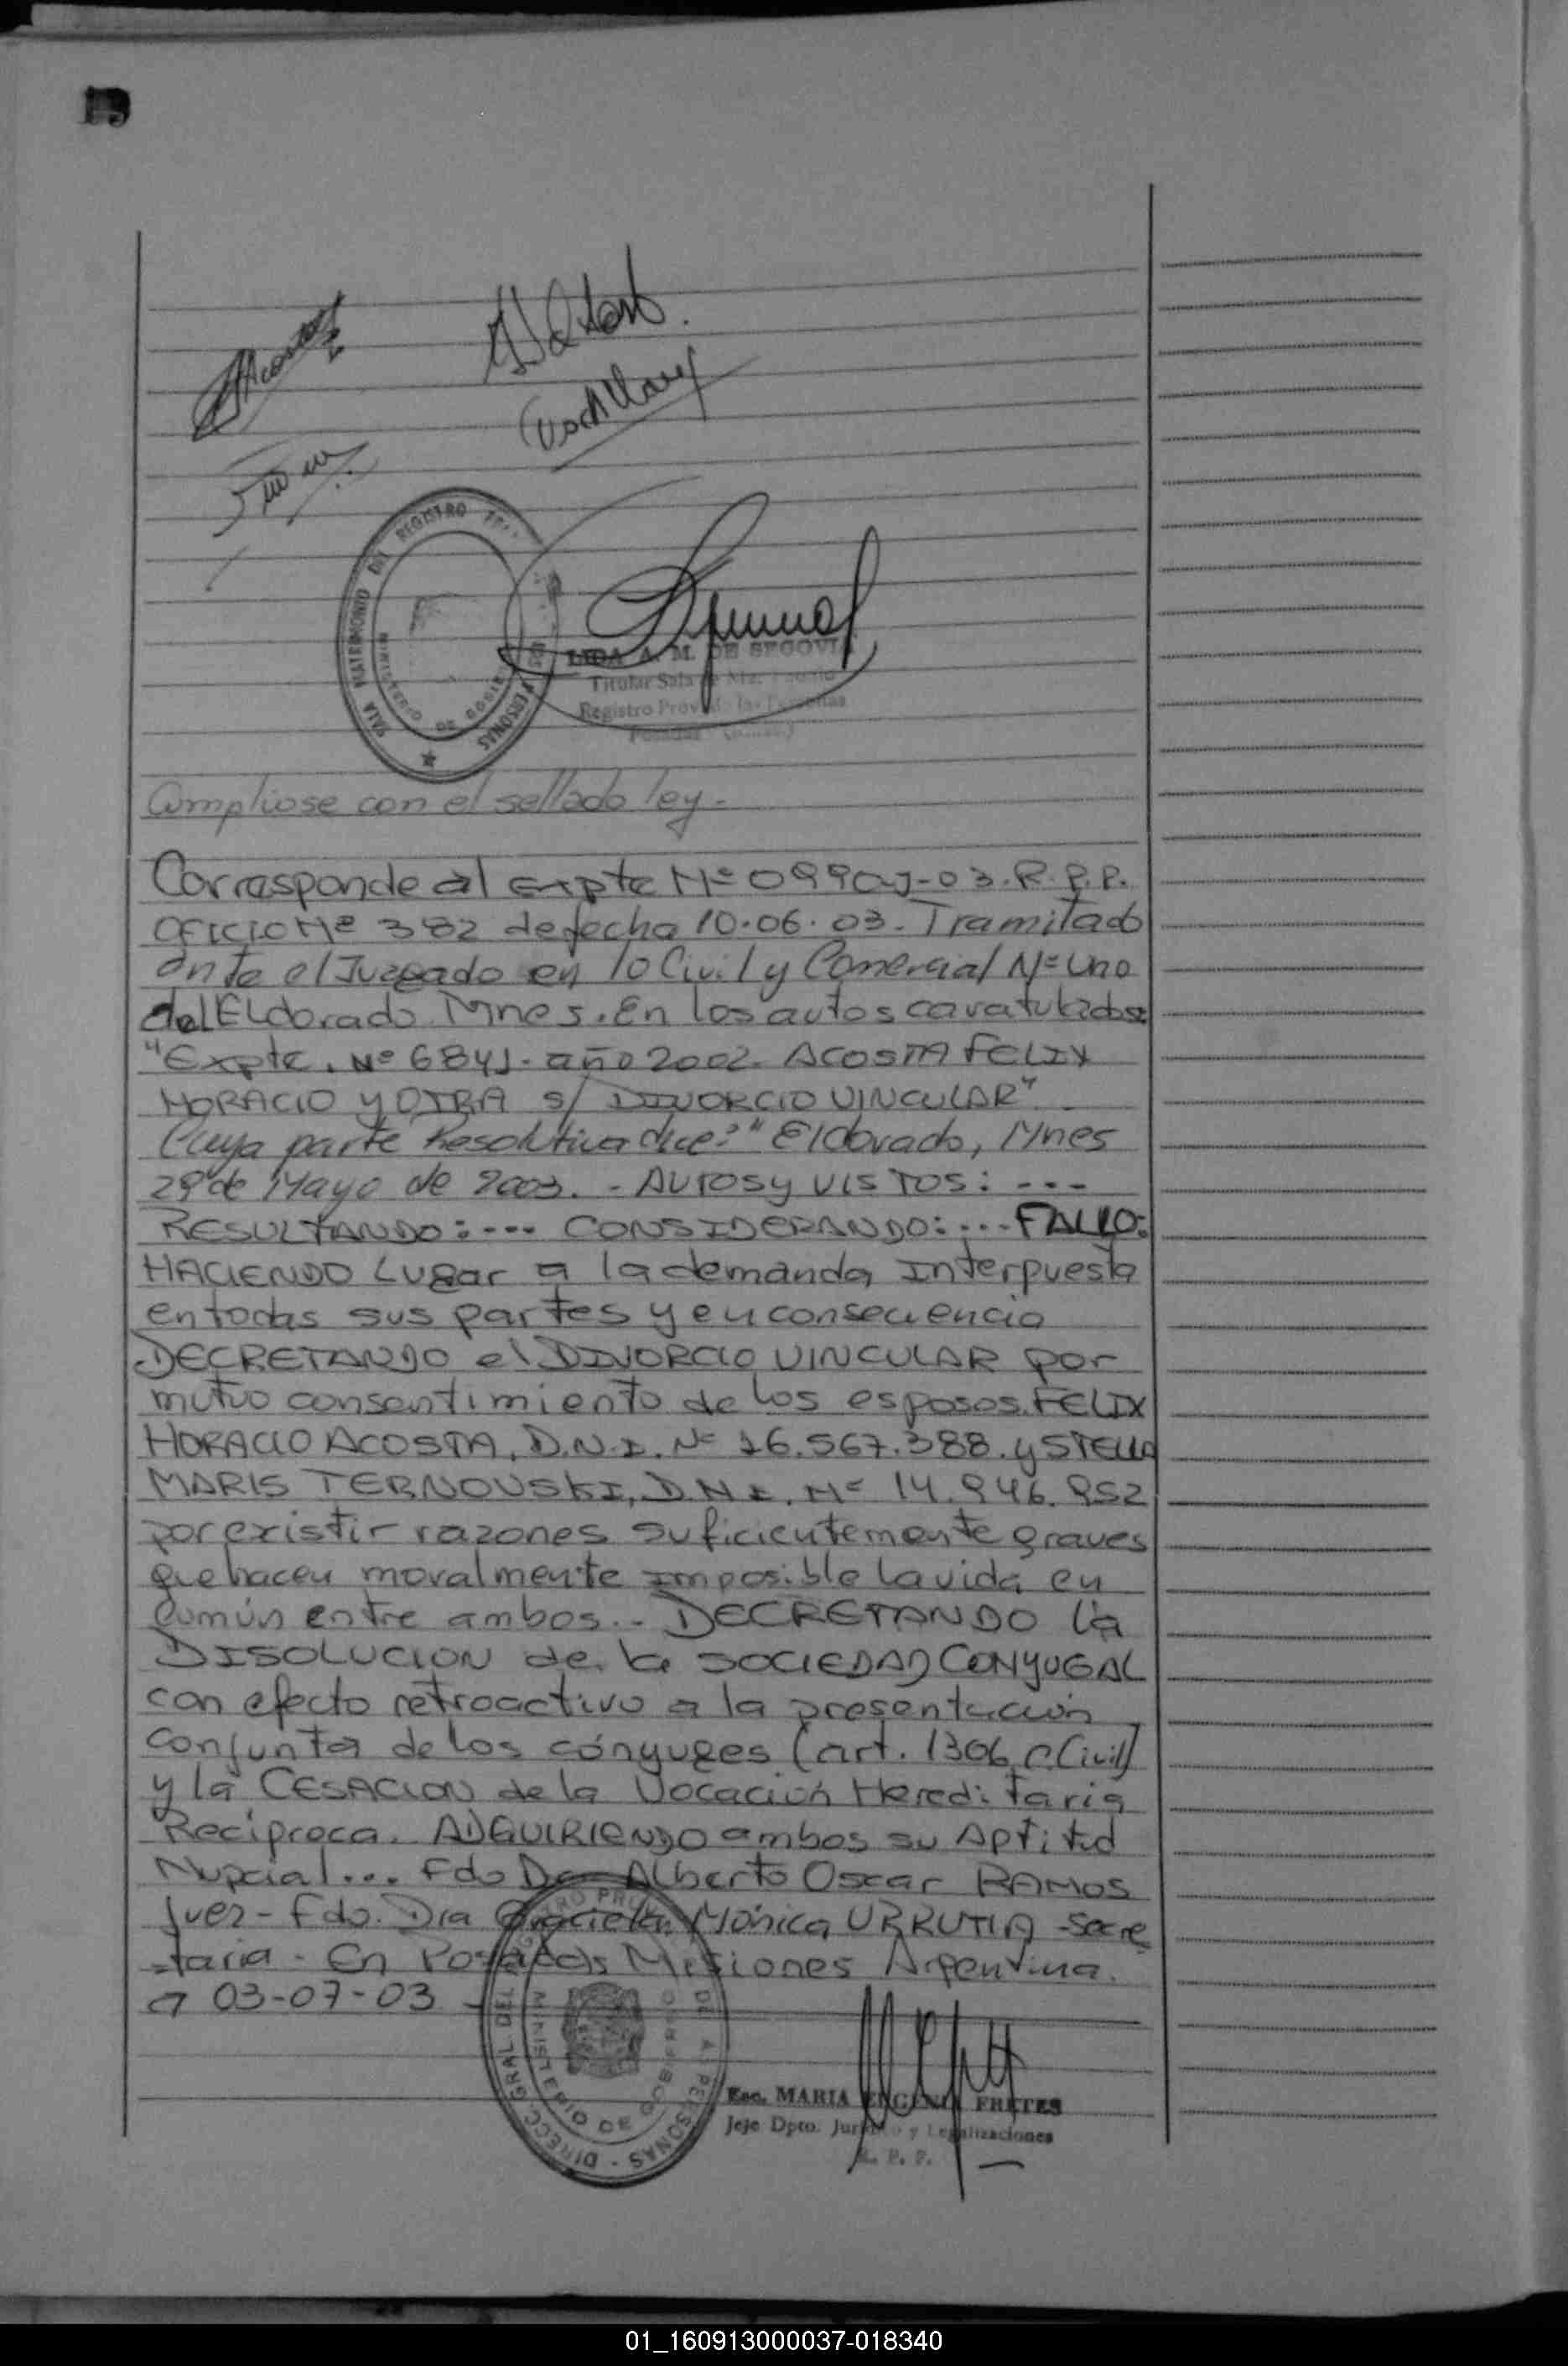 SALA MATRIMONIO DEL REGISTRO PERSONAS
MINISTERIO DE GOBIERNO
LIDA A. M. DE SEGOVIA
Titular Sala de
Registro Prov. de las Personas
Posadas
Cumpliose con el sellado ley.-
Corresponde al Expte Nº 0990-J-03.R.P.P.
OFICIO Nº 382 de fecha 10.06.03.- Tramitado
ante el Juzgado en lo Civil y Comercial Nº Uno
del ELdorado Mnes. En los autos caratulados:
"Expte. Nº 684J- año 2002- ACOSTA FELIX
HORACIO y OTRA S/ DIVORCIO VINCULAR"
Cuya parte Resolutiva dice: "Eldorado, Mnes
29 de Mayo de 2003.- AUTOS y VISTOS: ---
RESULTANDO: --- CONSIDERANDO: --- FALLO:
HACIENDO Lugar a la demanda Interpuesta
en todas sus partes y en consecuencia
DECRETANDO el DIVORCIO VINCULAR por
mutuo consentimiento de los esposos FELIX
HORACIO ACOSTA, D.N.I. Nº 16.567.388. y STELLA
MARIS TERNOVSKI, D.N.I. Nº 14.946.952
por existir razones suficientemente graves
que hacen moralmente Imposible la vida en
Común entre ambos.- DECRETANDO la
DISOLUCION de la SOCIEDAD CONYUGAL
con efecto retroactivo a la presentación
conjunta de los cónyuges (art. 1306 C.Civil)
y la CESACION de la Vocación Hereditaria
Recíproca. ADQUIRIENDO ambos su Aptitud
Nupcial... Fdo Dr Alberto Oscar RAMOS
Juez- Fdo. Dra Graciela Mónica URRUTIA -Secre
-taria- En Posadas Misiones Argentina.
a 03-07-03
DIRECC. GRAL DEL REGISTRO PROV. DE LAS PERSONAS
MINISTERIO DE GOBIERNO
Esc. MARIA EUGENIA FRETES
Jefe Dpto. Jurídico y Legalizaciones
R. P. P.
01_160913000037-018340